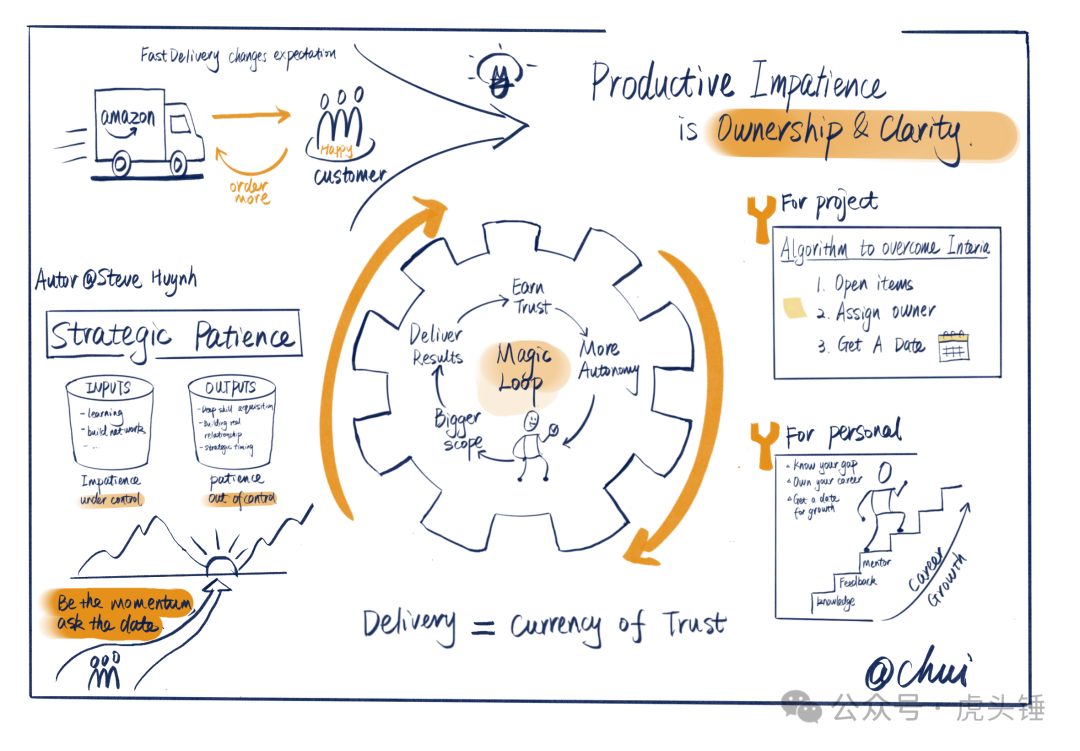 Fast Delivery changes expectation
amazon
Happy
customer
order
more
Productive Impatience
is Ownership & Clarity.
For project
Algorithm to overcome Interia
1. Open items
2. Assign owner
3. Get A Date
Autor @Steve Huynh
Strategic Patience
INPUTS
- learning
- build network
- ...
Impatience
under control
OUTPUTS
- Deep skill acquisition
- Building real
relationship
- strategic timing
patience
out of control
Be the momentum
ask the date
Magic
Loop
Earn
Trust
More
Autonomy
Bigger
scope
Deliver
Results
Delivery = Currency of Trust
For personal
Know your gap
Own your career
Get a date
for growth
Mentor
Feedback
knowledge
Career
Growth
@chui
公众号·虎头锤